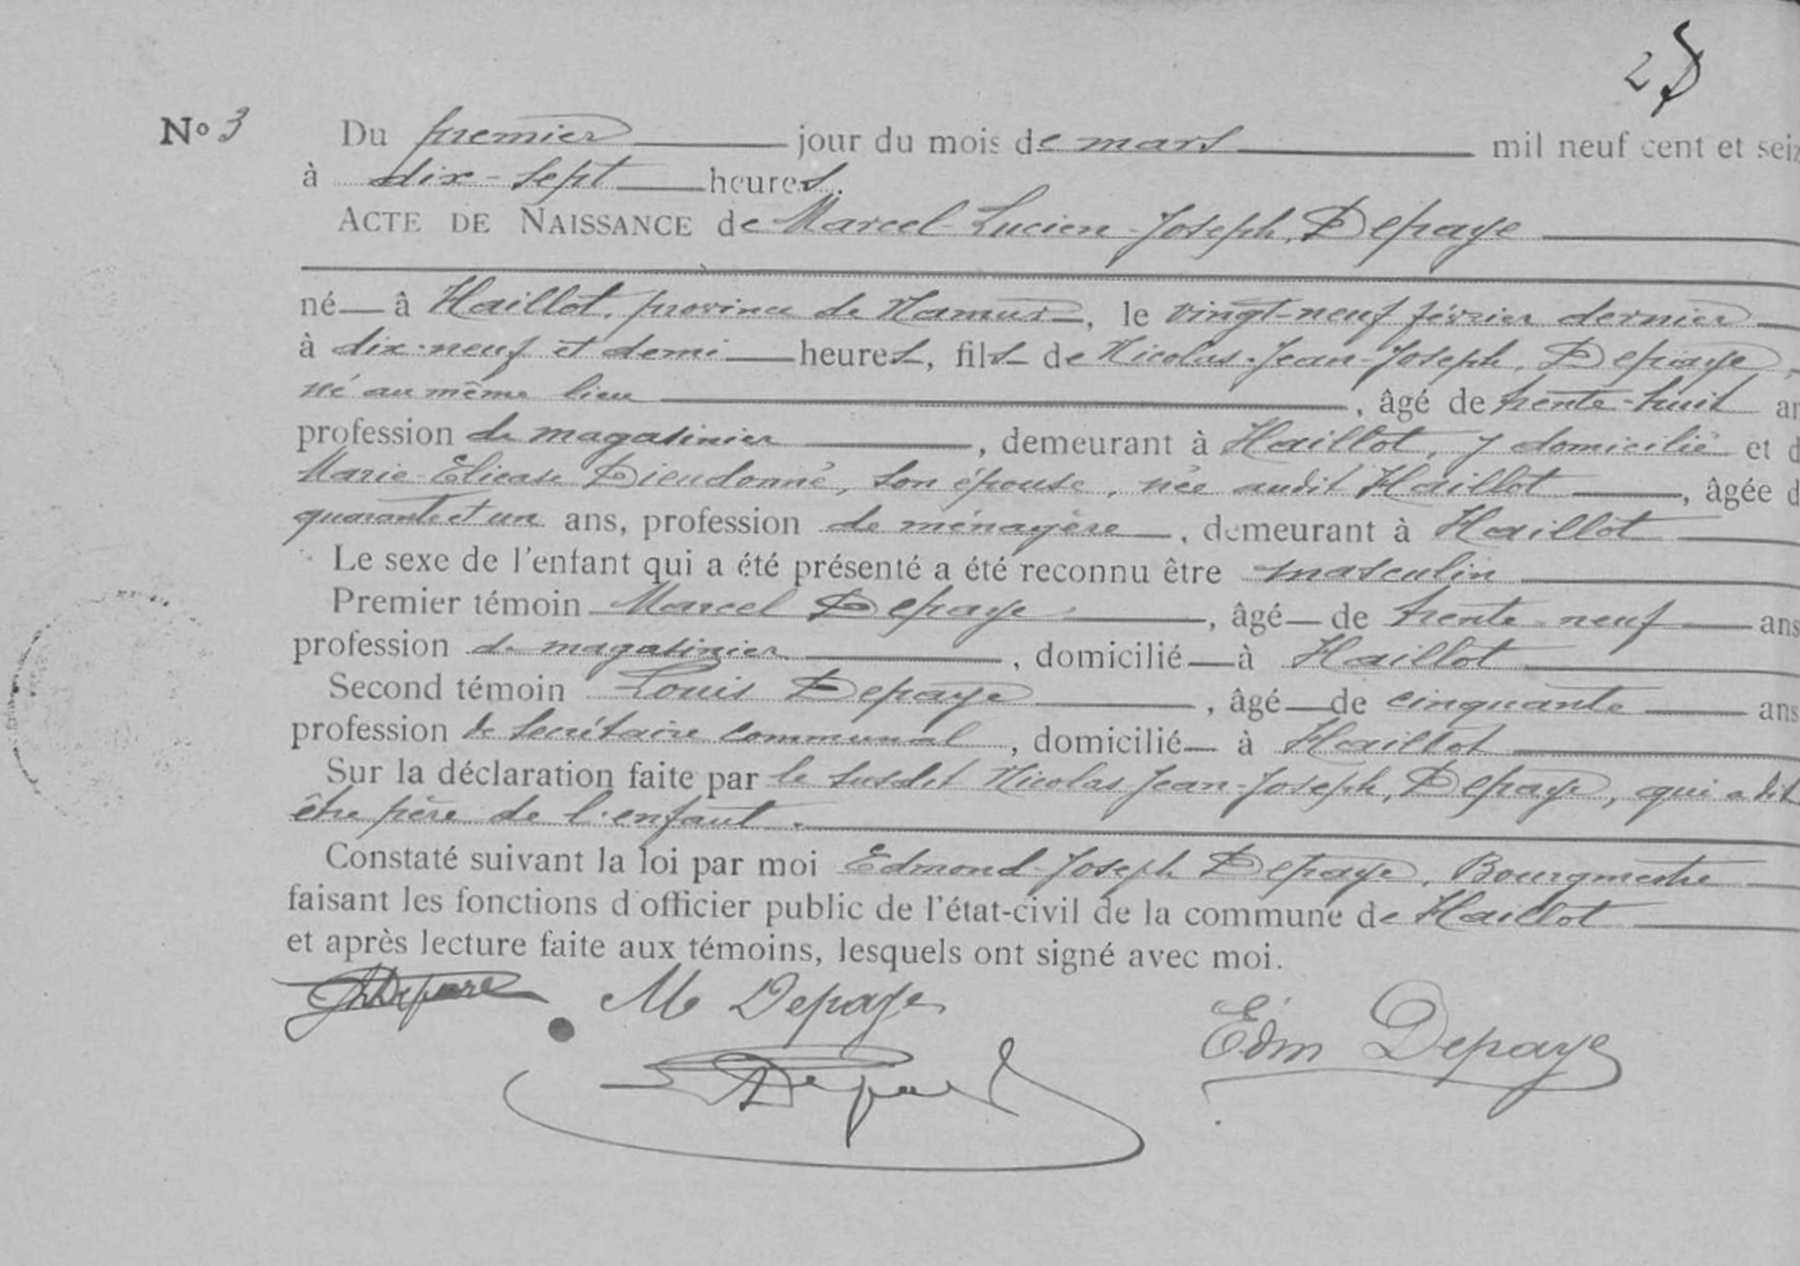 2
N° 3 Du premier jour du mois de mars mil neuf cent et seiz
à dix-sept heures.
ACTE DE NAISSANCE de Marcel-Lucien-Joseph, Depaye
né à Haillot, province de Namur, le vingt-neuf février dernier
à dix-neuf et demi heures, fils de Nicolas-Jean-Joseph, Depaye,
né au même lieu, âgé de trente-huit an
profession de magasinier, demeurant à Haillot, y domicilié et d
Marie-Elicase Dieudonné, son épouse, née audit Haillot, âgée d
quarante et un ans, profession de ménagère, demeurant à Haillot
Le sexe de l'enfant qui a été présenté a été reconnu être masculin
Premier témoin Marcel Depaye, âgé de trente-neuf ans
profession de magasinier, domicilié à Haillot
Second témoin Louis Depaye, âgé de cinquante ans
profession de secrétaire communal, domicilié à Haillot
Sur la déclaration faite par le susdit Nicolas-Jean-Joseph, Depaye, qui a dit
être père de l'enfant.
Constaté suivant la loi par moi Edmond-Joseph Depaye, Bourgmestre
faisant les fonctions d'officier public de l'état-civil de la commune de Haillot
et après lecture faite aux témoins, lesquels ont signé avec moi.
M Depaye
Edm Depaye